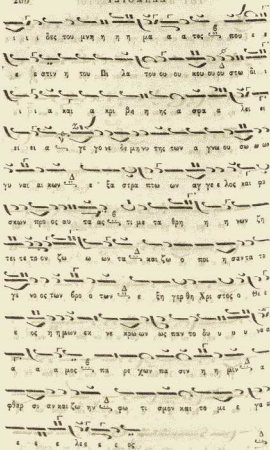 ι ι δες του μνη η η η μα α α τες που ε ε
ε ε στιν η του Πι λα του ου ου κου ου ου στω δι ι
ι ι α και α κρι βη η ης α σφα λει ει
ει ει α γε γο νε δε μη νυ της των α γνω σω ων
γυ ναι αι κων ε ξα στρα πτω ων αγ γε λος και φα
σκων προς ου τα ας τι με τα θρη η η νων ζη
τει τε τον ζω ω ων τα και ζω ο ποι η σαν τα τα
γε νος των βρο ο των ε ξη γερ θη Χρι στος ο Θε ε
ος η η μων εκ νε κρω ων ως παν το δυ υ υ να
α α α μος πα ρε χων πα σιν η η μιν α
φθαρ σι αν και ζω ην φω τι σμον και το με ε γα α
ε ε ε λε ε ε ος